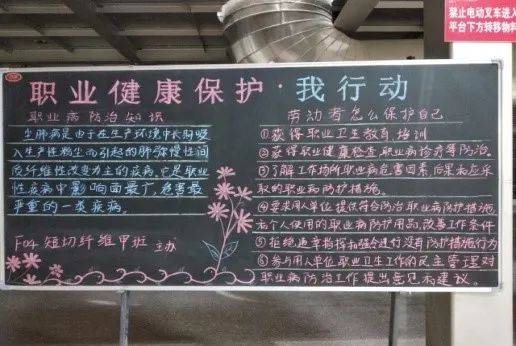 禁止电动叉车进入
平台下方转移物料
职业健康保护·我行动
职业病防治知识
尘肺病是由于在生产环境中长期吸
入生产性粉尘而引起的肺弥慢性间
质纤维性改变为主的疾病。它是职业
性疾病中影响面最广,危害最
严重的一类疾病。
F04短切纤维甲班 主办
劳动者怎么保护自己
①获得职业卫生教育培训
②获得职业健康检查职业病诊疗等防治。
③了解工作场所职业病危害因素后果和应采
取的职业病防护措施。
④要求用人单位提供符合防治职业病防护措施
和个人使用的职业病防护用品,改善工作条件
⑤拒绝违章指挥和强令进行没有防护措施行为
⑥参与用人单位职业卫生工作的民主管理对
职业病防治工作提出意见和建议。